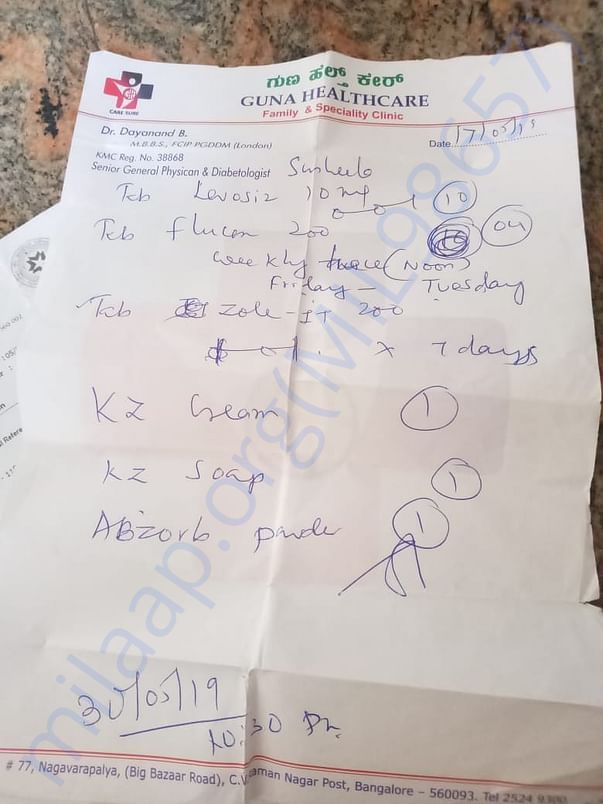 ಗುಣ ಹೆಲ್ತ್ ಕೇರ್
GUNA HEALTHCARE
Family & Speciality Clinic
CARE SURE
Dr. Dayanand B.
M.B.B.S., FCIP PGDDM (London)
KMC Reg. No. 38868
Senior General Physican & Diabetologist
Date 17/05/19
Tab Levosiz 10 mg 10
Tab flucan 200 04
weekly twice (Noon)
Friday - Tuesday
Tab Zole-IT 200
x 7 days
KZ Cream 1
KZ Soap 1
ABzorb powder 1
30/05/19
10:30
# 77, Nagavarapalya, (Big Bazaar Road), C.V. Raman Nagar Post, Bangalore - 560093. Tel 2524 9300
milaap.org(MIL98657)